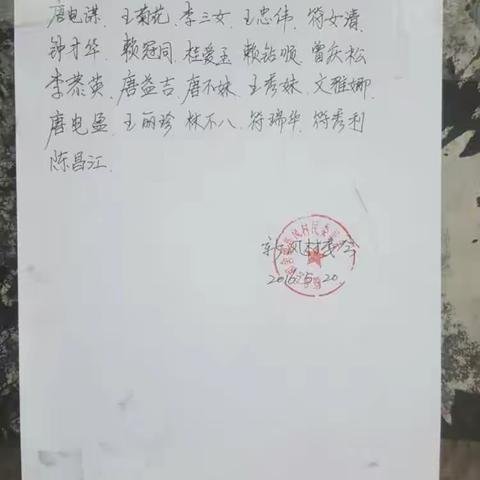 唐电谋、王菊花、李三女、王忠伟、符女清、
钟才华、赖冠同、桂爱玉、赖钻顺、曾庆松
李恭英、唐益吉、唐不妹、王秀妹、文雅娜、
唐电盈、王丽珍、林不八、符瑞华、符秀利
陈昌江、
新风村委会
2016.5.20